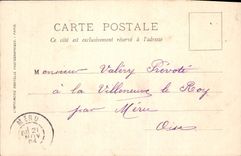 CARTE POSTALE
Ce côté est exclusivement réservé à l'adresse
Monsieur Valéry Prévoté
à la Villeneuve le Roy
par Méru
Oise
MERU
21
NOV
04